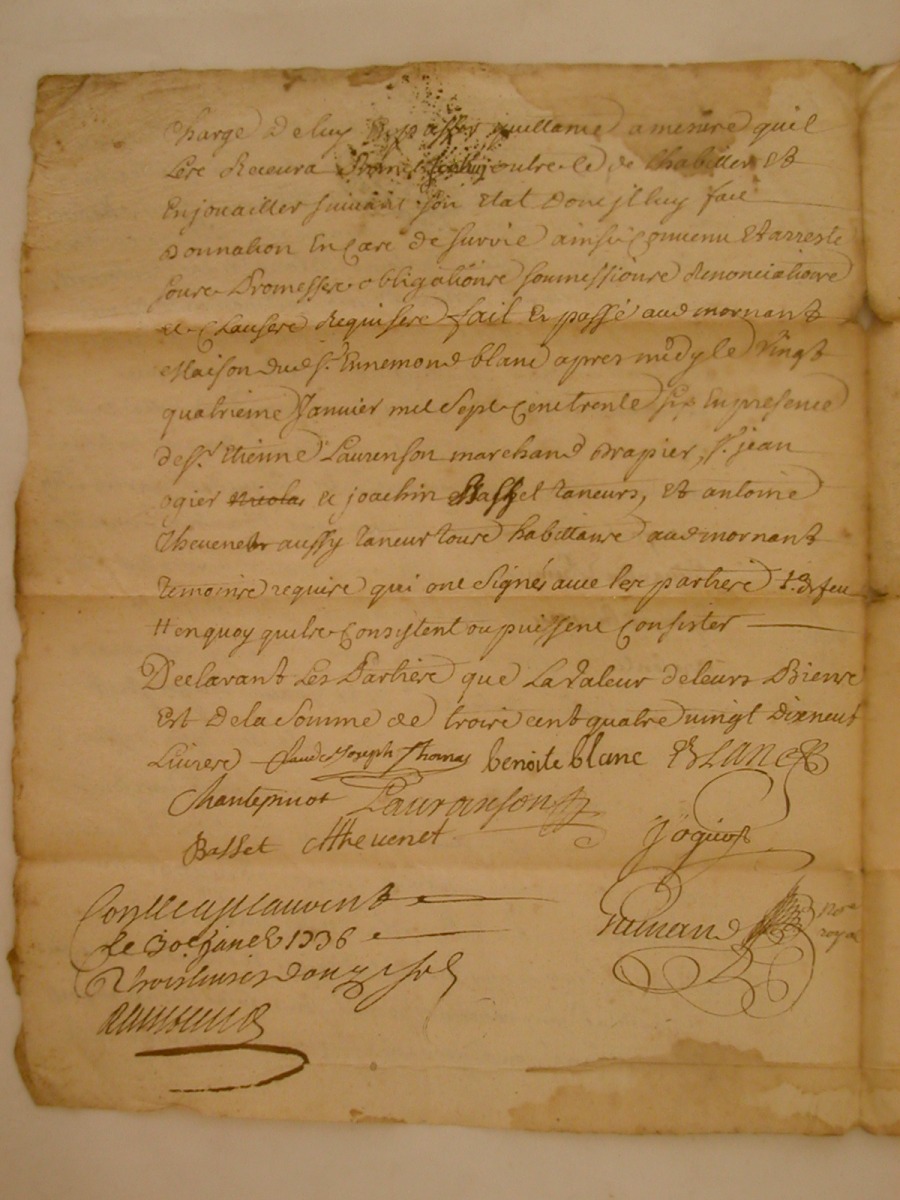 charge de luy passer quittance a mesure quil
Les Recevra Promet outre ce de Lhabiller Et
Enjouailler suivant son Etat dont jl luy fait
Donnation En Cas de survie ainsi Convenu Et arresté
sous Promesses obligations soumissions Renonciations
et Clauses Requises fait Et passé aud mornant
Maison dud sr. Ennemond blanc apres midy le Vingt
quatrieme Janvier mil Sept Cent trente six En presence
de sr. Etienne Laurenson marchand drapier, sr. jean
ogier Nicolas & joachin Basset taneurs, Et antoine
Thevenet aussy taneur tous habittants aud mornant
temoins requis qui ont Signés avec les parties
En quoy quils Consistent ou puissent Consister
Declarant Les Parties que La Valeur de leurs Biens
Est De la Somme de trois cent quatre vingt Dix neuf
Livres Claude Joseph Thomas benoite blanc BLANC
Chantepinot Lauranson
Basset AThevenet
le 30e. janer 1736
Trois livres douze sols